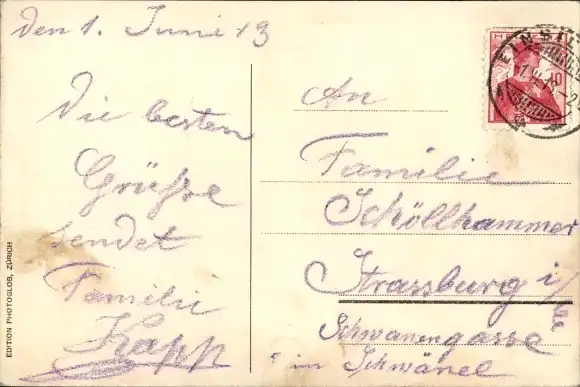 Den 1. Juni 13
Die besten
Grüsse
sendet
Familie
Kapp
An
Familie
Schöllhammer
Strassburg i/E
Schwanengasse
im Schwänel
10
EDITION PHOTOGLOB, ZÜRICH